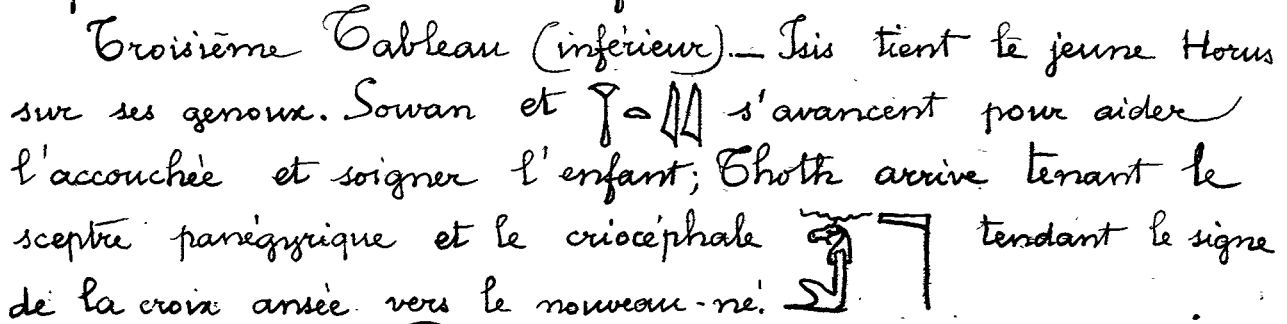 Troisième Tableau (inférieur).— Isis tient le jeune Horus
sur ses genoux. Sowan et s'avancent pour aider
l'accouchée et soigner l'enfant; Thoth arrive tenant le
sceptre panégyrique et le criocéphale tendant le signe
de la croix ansée vers le nouveau-né.